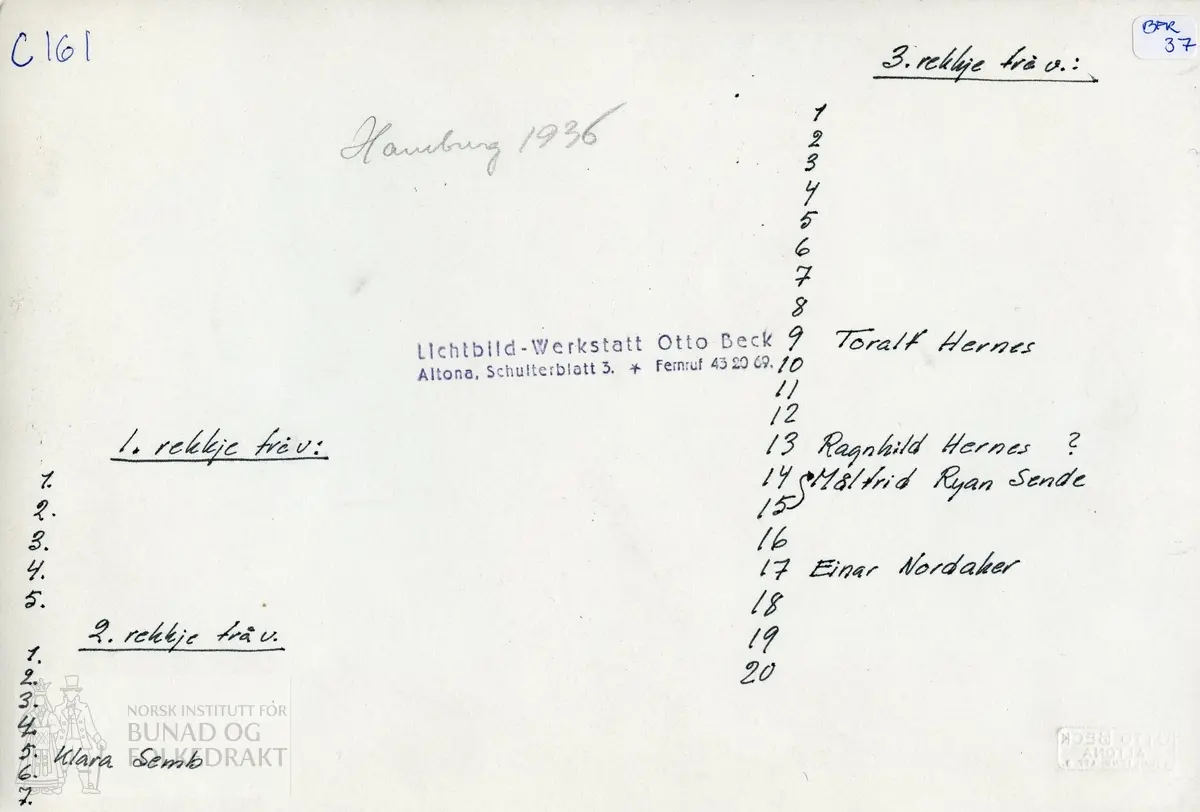 C161
BFR
37
Hamburg 1936
Lichtbild-Werkstatt Otto Beck
Altona, Schulterblatt 3. * Fernruf 43 20 69.
1. rekkje frå v:
1.
2.
3.
4.
5.
2. rekkje frå v.
1.
2.
3.
4.
5. Klara Semb
6.
7.
3. rekkje frå v.:
1
2
3
4
5
6
7
8
9 Toralf Hernes
10
11
12
13 Ragnhild Hernes ?
14 Målfrid Ryan Sende
15
16
17 Einar Nordaker
18
19
20
NORSK INSTITUTT FOR
BUNAD OG
FOLKEDRAKT
OTTO BECK
ALTONA